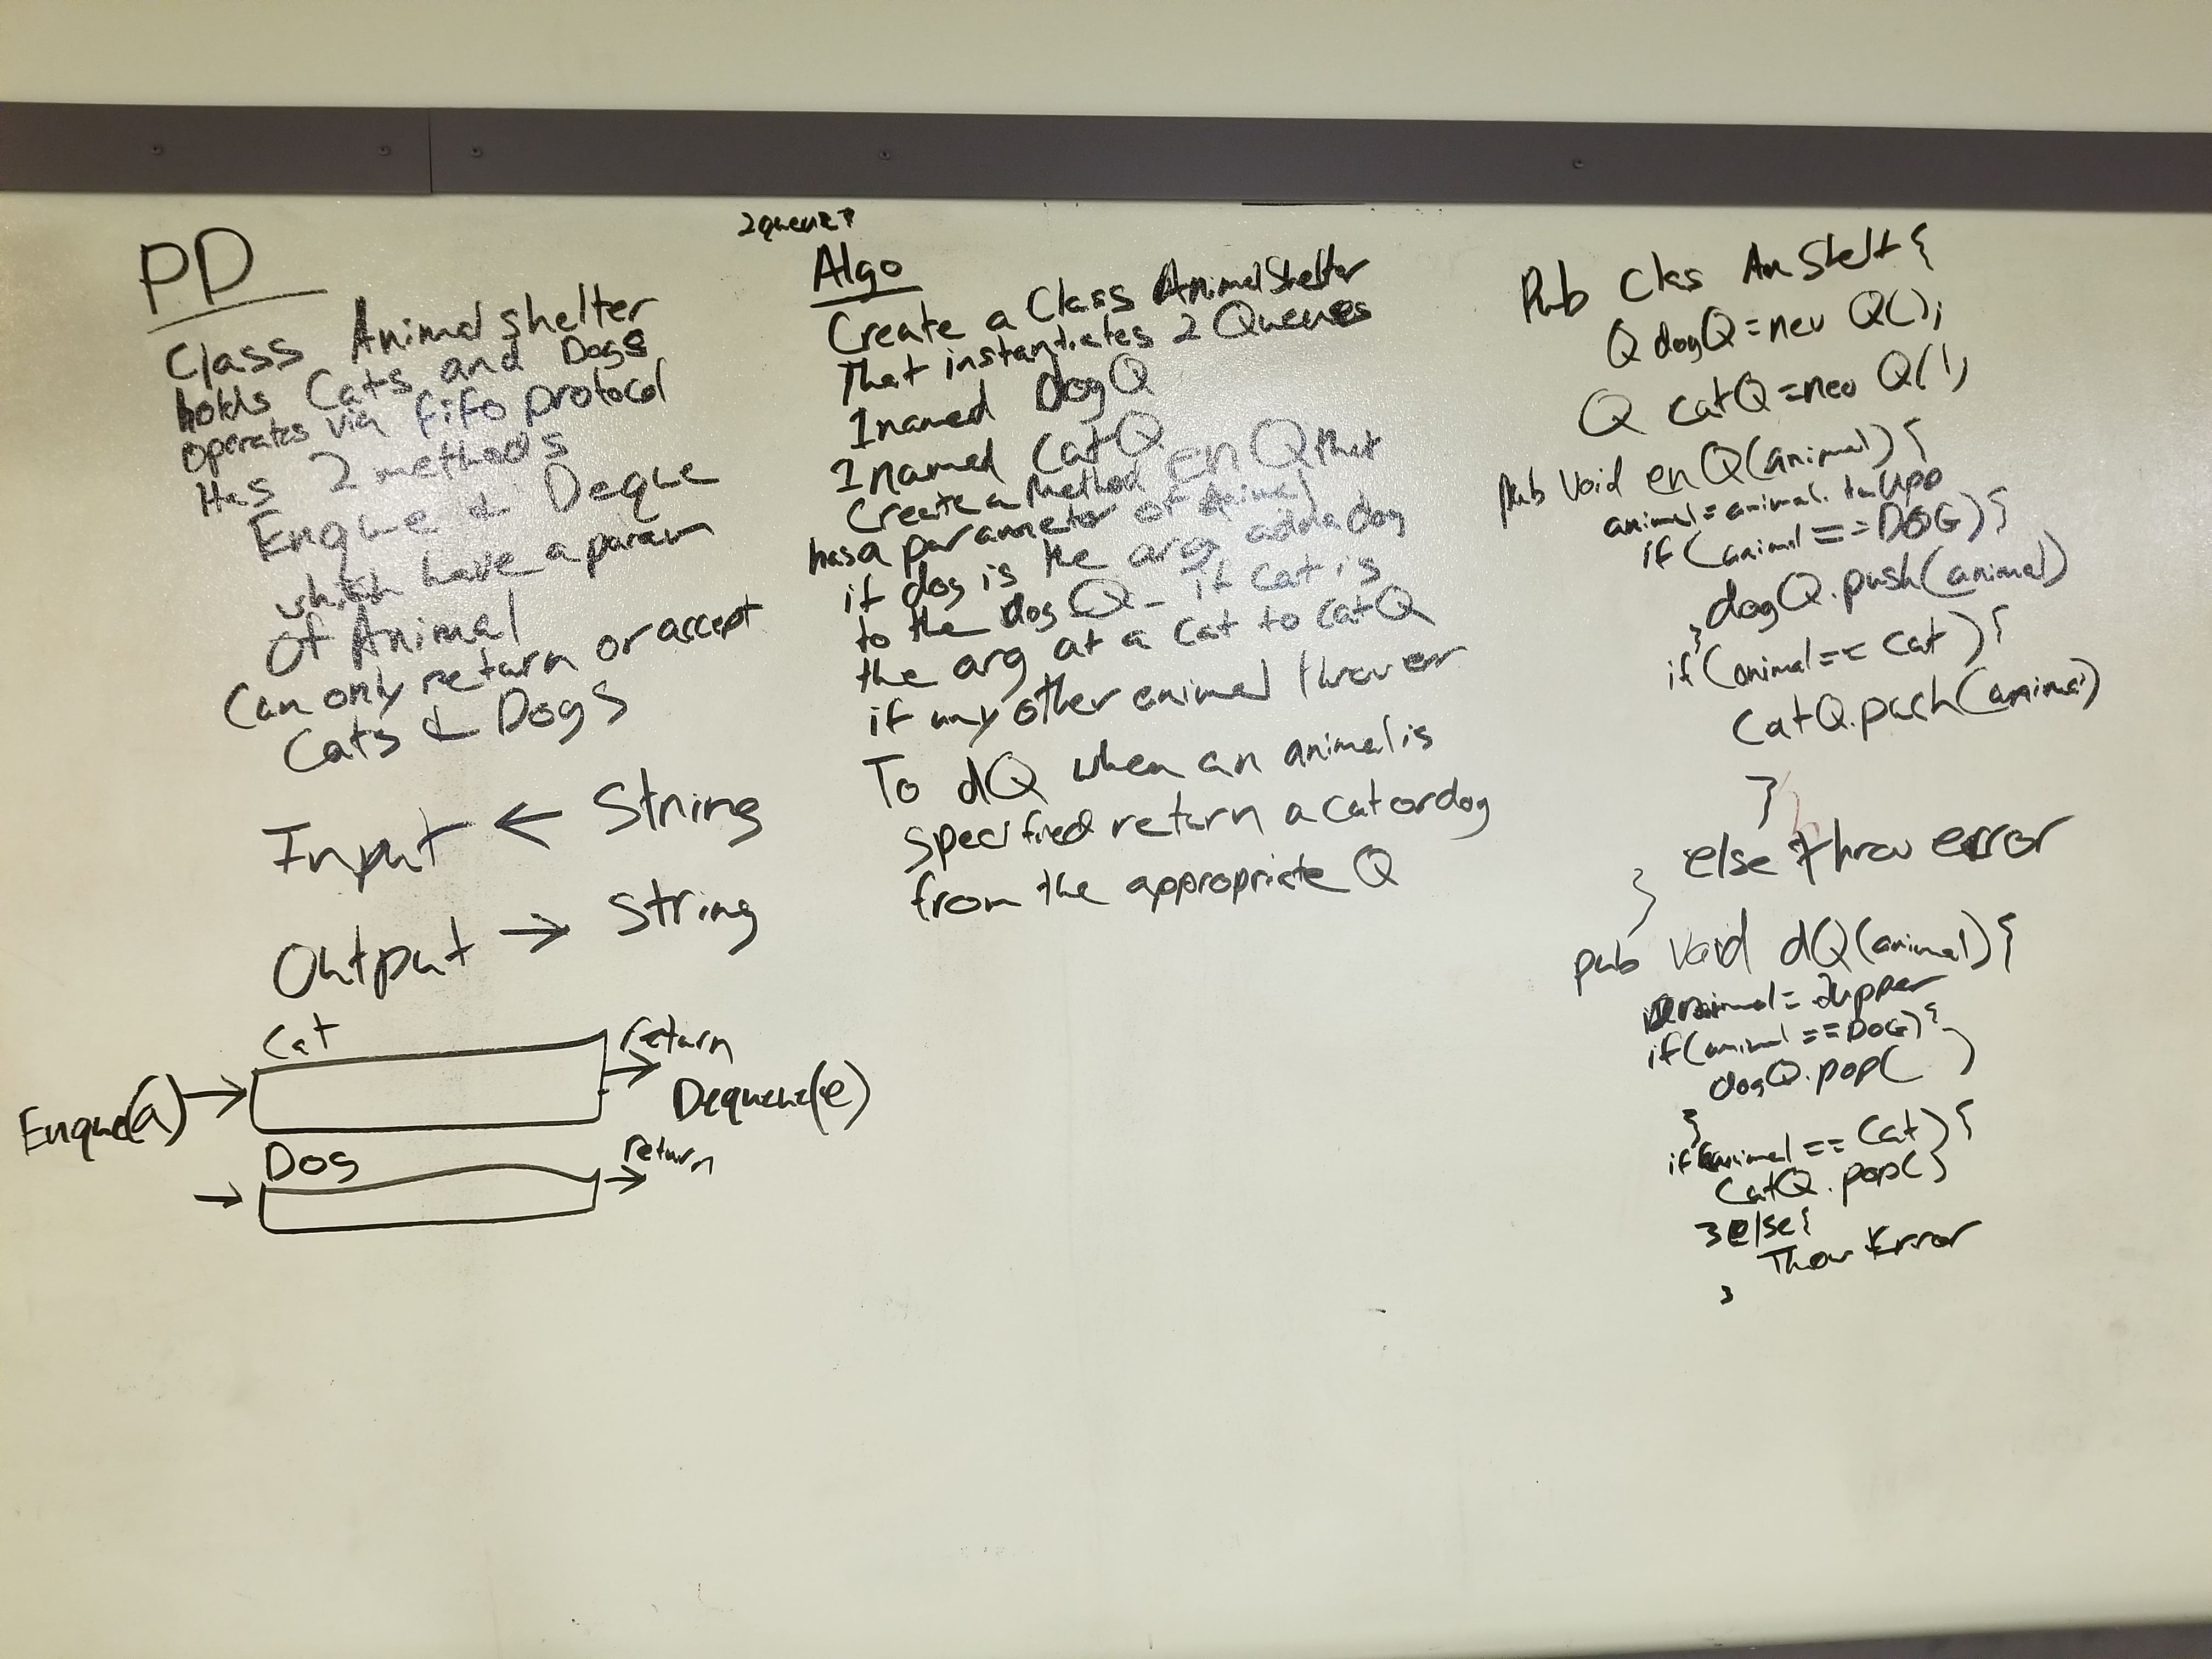 PD
Class Animal shelter
holds Cats and Dogs
operates via fifo protocol
Has 2 methods
Enque & Deque
which have a param
of Animal
Can only return or accept
Cats & Dogs
Input ← String
Output → String
Cat
return
Enque(a)
Dequeue(e)
Dog
return
Algo
Create a Class AnimalShelter
That instantiates 2 Queues
1 named dogQ
1 named CatQ
Create a Method enQ that
has a parameter of Animal
if dog is the arg add a dog
to the dog Q - if cat is
the arg at a cat to catQ
if any other animal throw err
To dQ when an animal is
specified return a cat or dog
from the appropriate Q
Pub Clas An Shelt {
Q dogQ = new Q();
Q catQ = new Q();
pub Void enQ(animal) {
animal = animal.
if (animal == DOG) {
dogQ.push(animal)
}
if (animal == Cat) {
CatQ.push(animal)
}
else throw error
}
pub Void dQ(animal) {
animal = 2upper
if (animal == DOG) {
dogQ.pop( )
}
if (animal == Cat) {
CatQ.pop( )
} else {
Thow Error
}